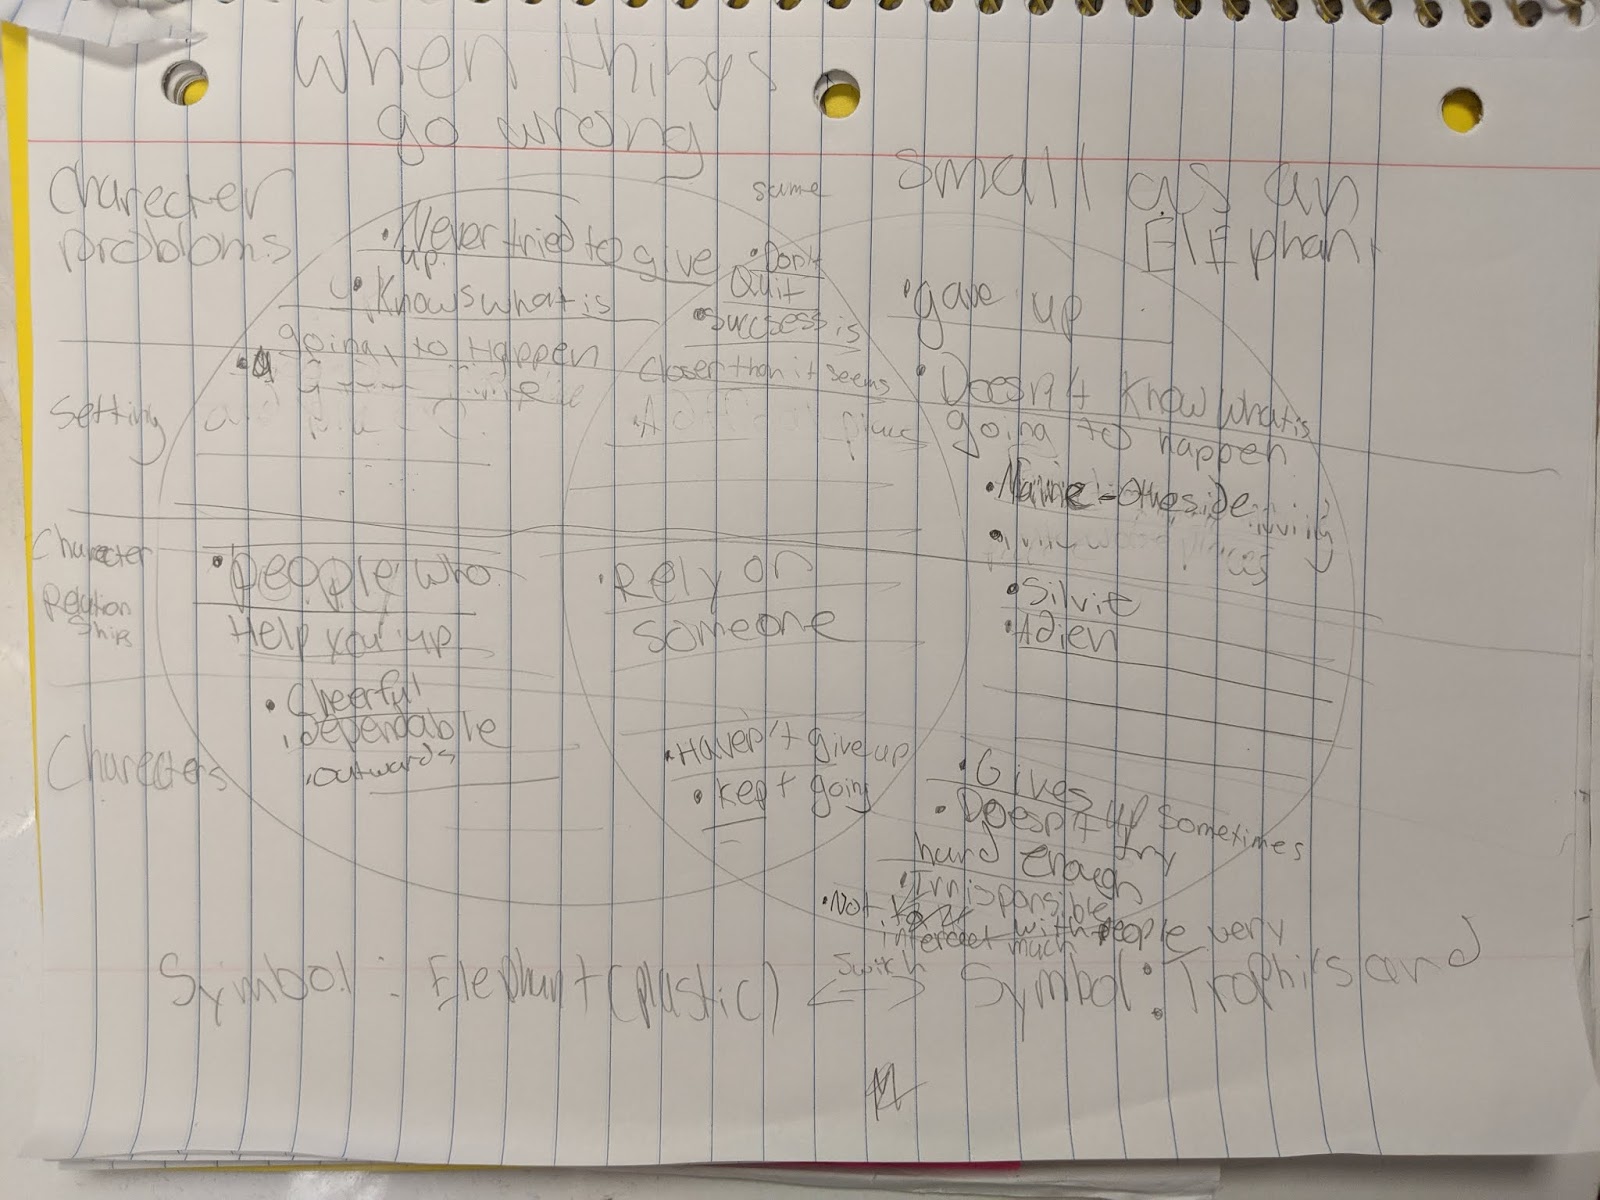 When things
go wrong
same
Small as an
ElEphant
Charecter
probloms
• Never tried to give
up.
• Knows what is
going to Happen
• Don't
Quit
• Succsess is
closer than it seems
• gave up
• Doesn't know what is
going to happen
Setting
Charecter
Relation
Ships
• people who
Help you up
• Rely on
Someone
• Silvie
• Adien
Charecters
• Cheerful
• Dependable
• outwards
• Haven't give up
• kept going
• Gives up sometimes
• Doesn't try
hard enough
• Irrisponsible
• Not
interect with people very
much
Symbol: Elephant (plastic)
Switch
Symbol: Trophi's and